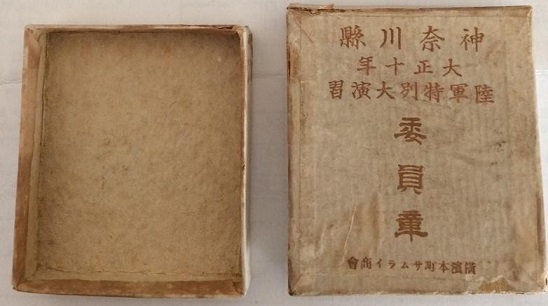 神奈川縣
大正十年
陸軍特別大演習
委員章
橫濱本町サムライ商會